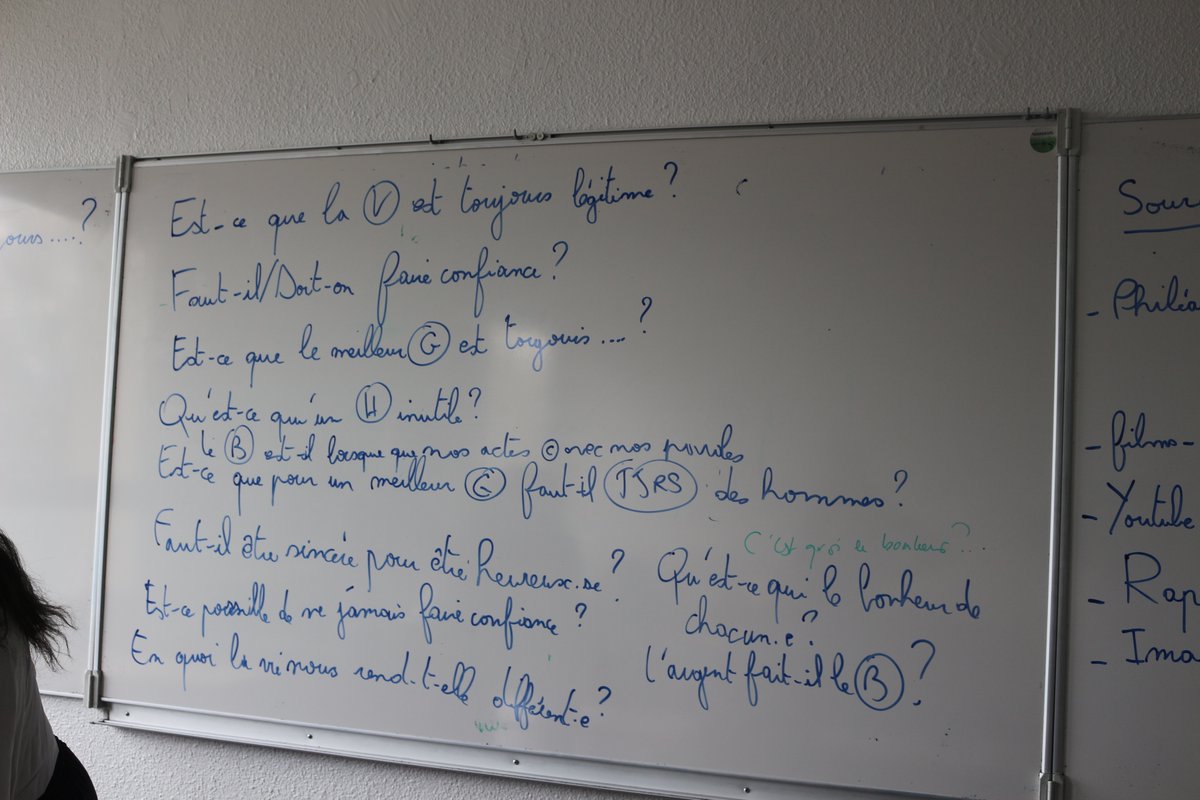 ?
ours....
Est-ce que la V est toujours légitime ?
Faut-il/Doit-on faire confiance ?
Est-ce que le meilleur G est toujours ... ?
Qu'est-ce qu'un H inutile ?
le B est-il lorsque que nos actes © avec nos paroles
Est-ce que pour un meilleur G faut-il TJRS des hommes ?
Faut-il être sincère pour être heureux.se ?
Est-ce possible de ne jamais faire confiance ?
En quoi la vie nous rend-t-elle différent.e ?
C'est quoi le bonheur ?...
Qu'est-ce qui le bonheur de
chacun.e ?
L'argent fait-il le B ?
Sour
- Philéa
- films-
- Youtube
- Rap
- Ima